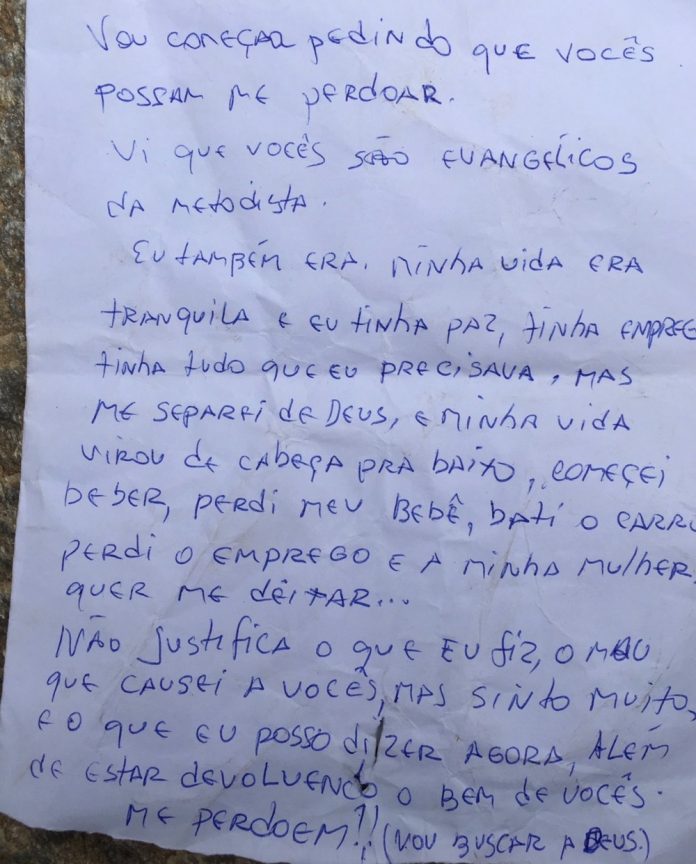 Vou começar pedindo que vocês
possam me perdoar.
Vi que vocês são evangélicos
da metodista.
Eu também era. minha vida era
tranquila e eu tinha paz, tinha empreg
tinha tudo que eu precisava, mas
me separei de Deus, e minha vida
virou de cabeça pra baixo, começei
beber, perdi meu bebê, bati o carro
perdi o emprego e a minha mulher
quer me deixar...
Não justifica o que eu fiz, o mau
que causei a vocês, mas sinto muito,
e o que eu posso dizer agora, além
de estar devolvendo o bem de vocês.
me perdoem!! (vou buscar a Deus.)